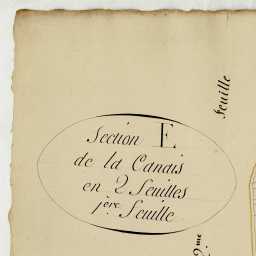 Section E
de la Canais
en 2 Feuilles
1ère Feuille
Feuille
2me